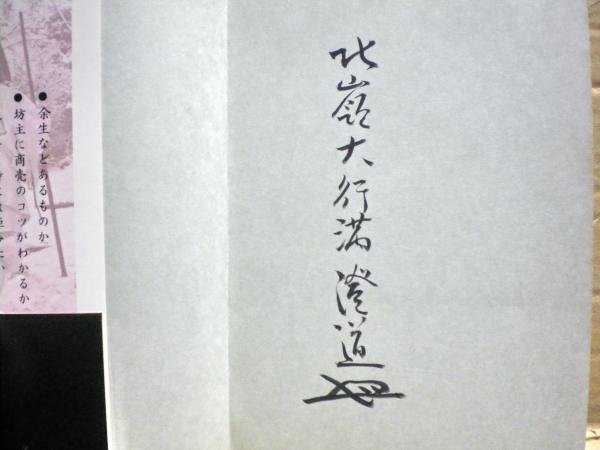 北嶺大行満 澄道
● 余生などあるものか
● 坊主に商売のコツがわかるか